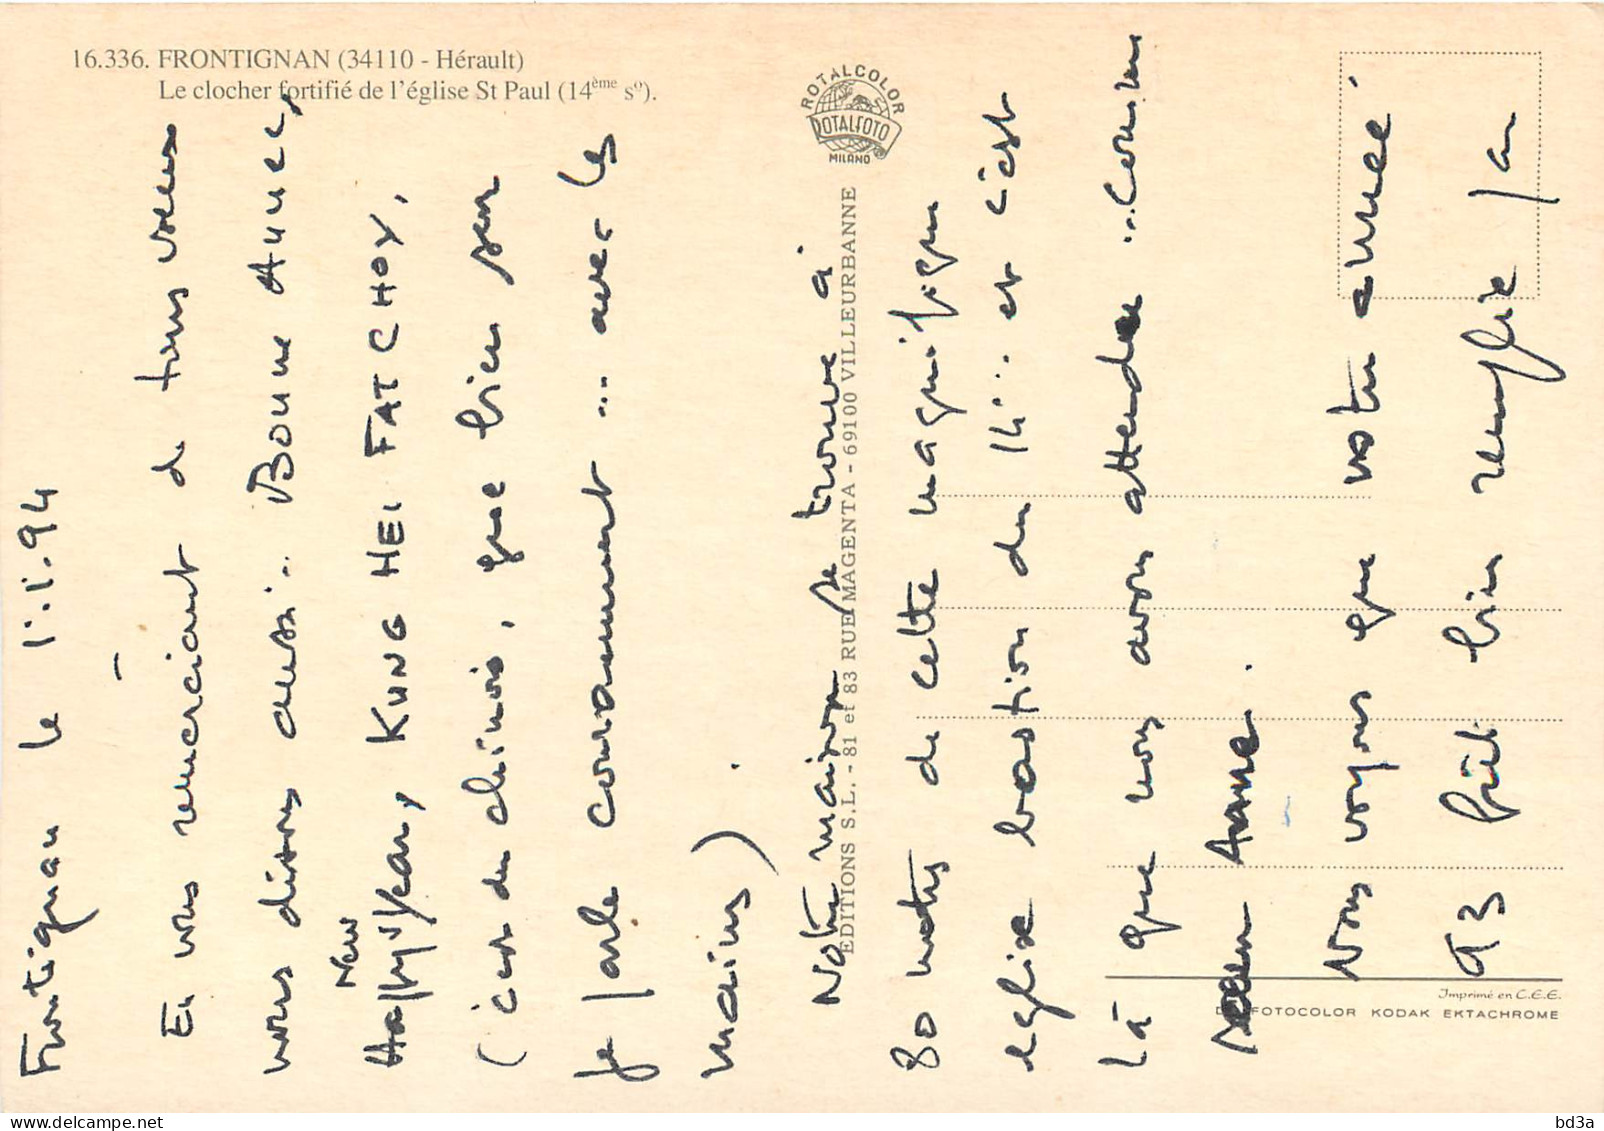 16.336. FRONTIGNAN (34110 - Hérault)
Le clocher fortifié de l'église St Paul (14ème sº).
ROTALCOLOR
ROTALFOTO
MILANO
EDITIONS S.L. - 81 et 83 RUE MAGENTA - 69100 VILLEURBANNE
Imprimé en C.E.E.
FOTOCOLOR KODAK EKTACHROME
Frontignan le 1.1.94
En vous remerciant de tous vœux
nous disons aussi... BONNE ANNEE,
HAPPY New Year, KUNG HEI FAT CHOY,
(c'est du chinois, que bien sûr
je parle couramment ... avec les
mains).
Notre maison se trouve à
80 mètres de cette magnifique
église bastion du 14... et c'est
là que nous avons attendu
Anne.
Nous voyons que votre année
93 fût bien remplie
bd3a